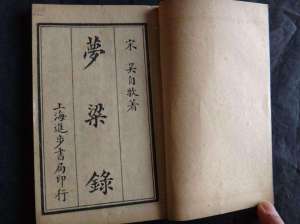 宋 吳自牧著
夢粱錄
上海進步書局印行